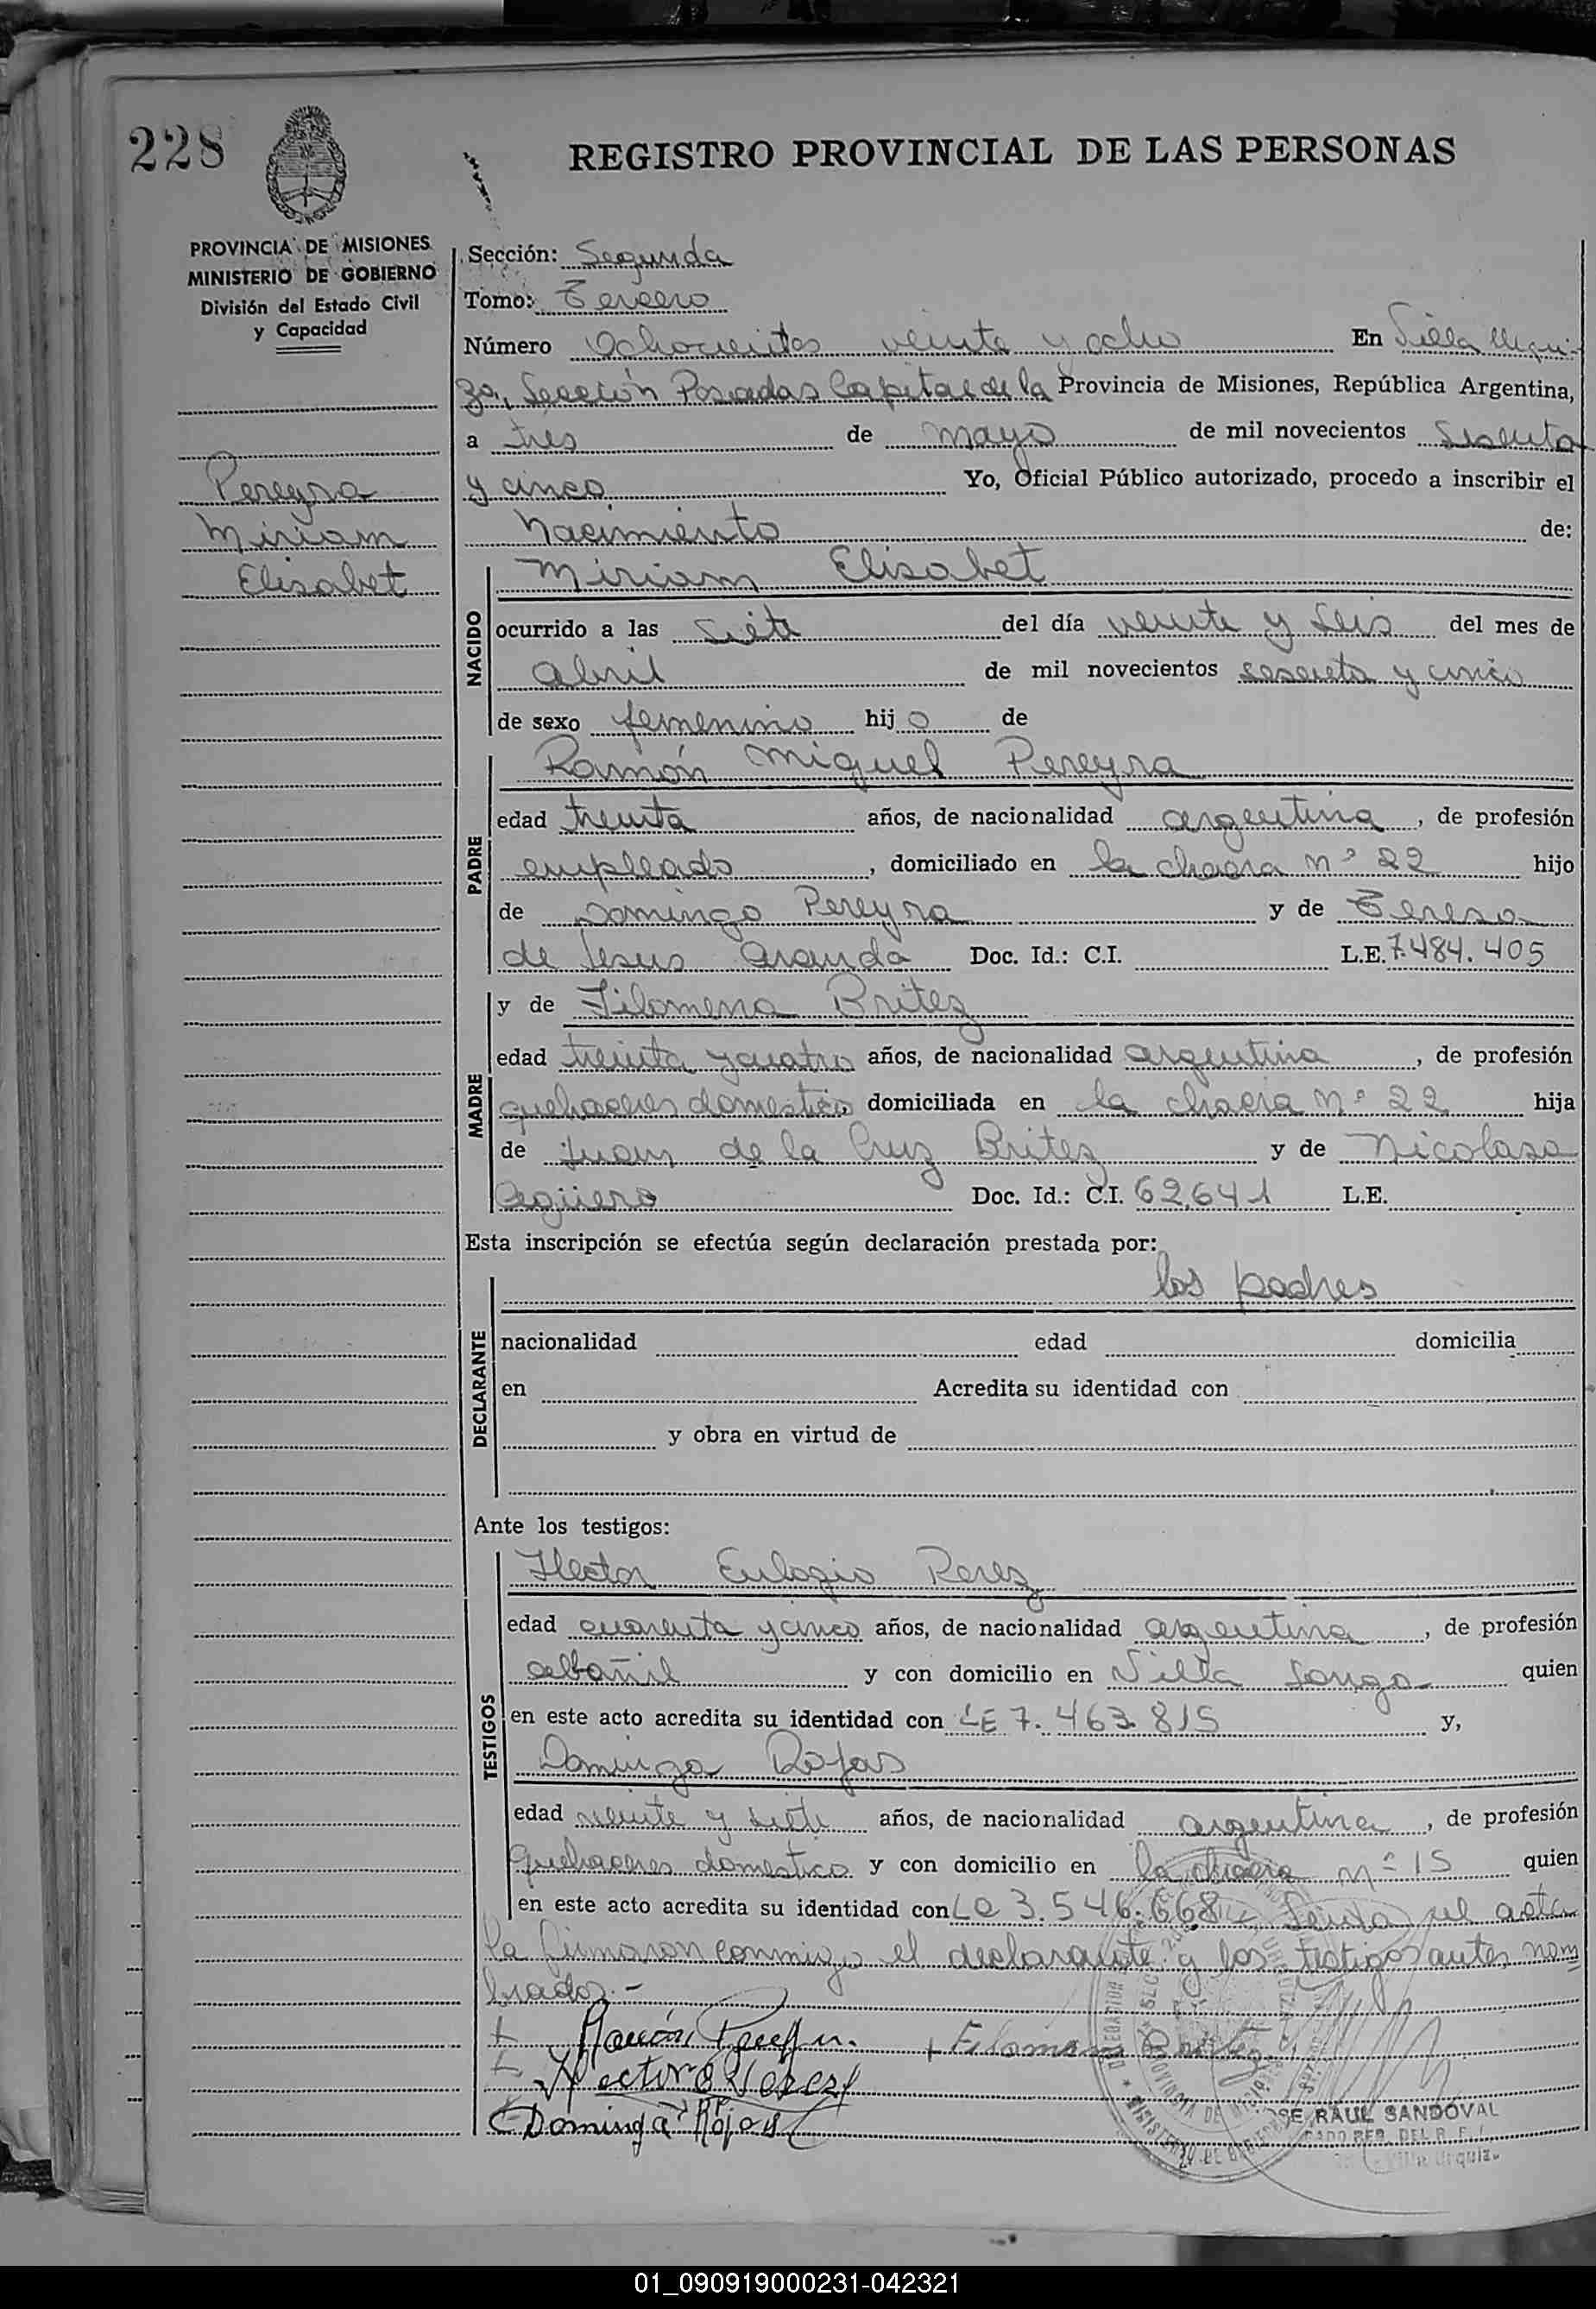 228
REGISTRO PROVINCIAL DE LAS PERSONAS
PROVINCIA DE MISIONES
MINISTERIO DE GOBIERNO
División del Estado Civil
y Capacidad
Pereyra
Miriam
Elisabet
Sección: Segunda
Tomo: Tercero
Número Ochocientos veinte y ocho En Villa Urqui-
za, Sección Posadas Capital de la Provincia de Misiones, República Argentina,
a tres de mayo de mil novecientos sesenta
y cinco Yo, Oficial Público autorizado, procedo a inscribir el
nacimiento de:
NACIDO
Miriam Elisabet
ocurrido a las siete del día veinte y seis del mes de
abril de mil novecientos sesenta y cinco
de sexo femenino hijo de
PADRE
Ramón Miguel Pereyra
edad treinta años, de nacionalidad argentina, de profesión
empleado, domiciliado en la chacra nº 22 hijo
de Domingo Pereyra y de Teresa
de Jesus Aranda Doc. Id.: C.I. L.E. 7.484.405
MADRE
y de Filomena Britez
edad treinta y cuatro años, de nacionalidad argentina, de profesión
quehaceres domestico domiciliada en la chacra nº 22 hija
de Juan de la Cruz Britez y de Nicolasa
Agüero Doc. Id.: C.I. 62.641 L.E.
Esta inscripción se efectúa según declaración prestada por:
DECLARANTE
los padres
nacionalidad edad domicilia
en Acredita su identidad con
y obra en virtud de
Ante los testigos:
TESTIGOS
Hector Eulogio Perez
edad cuarenta y cinco años, de nacionalidad argentina, de profesión
albañil y con domicilio en Villa Longa quien
en este acto acredita su identidad con LE 7.463.815 y,
Dominga Rojas
edad veinte y siete años, de nacionalidad argentina, de profesión
quehaceres domestico y con domicilio en la chacra nº 15 quien
en este acto acredita su identidad con LC 3.546.668 Leida el acta
la firmaron conmigo el declarante y los testigos antes nom
brados.-
Ramón Pereyra. Filomena Britez
Hector E Perez
Dominga Rojas
JOSE RAUL SANDOVAL
01_090919000231-042321